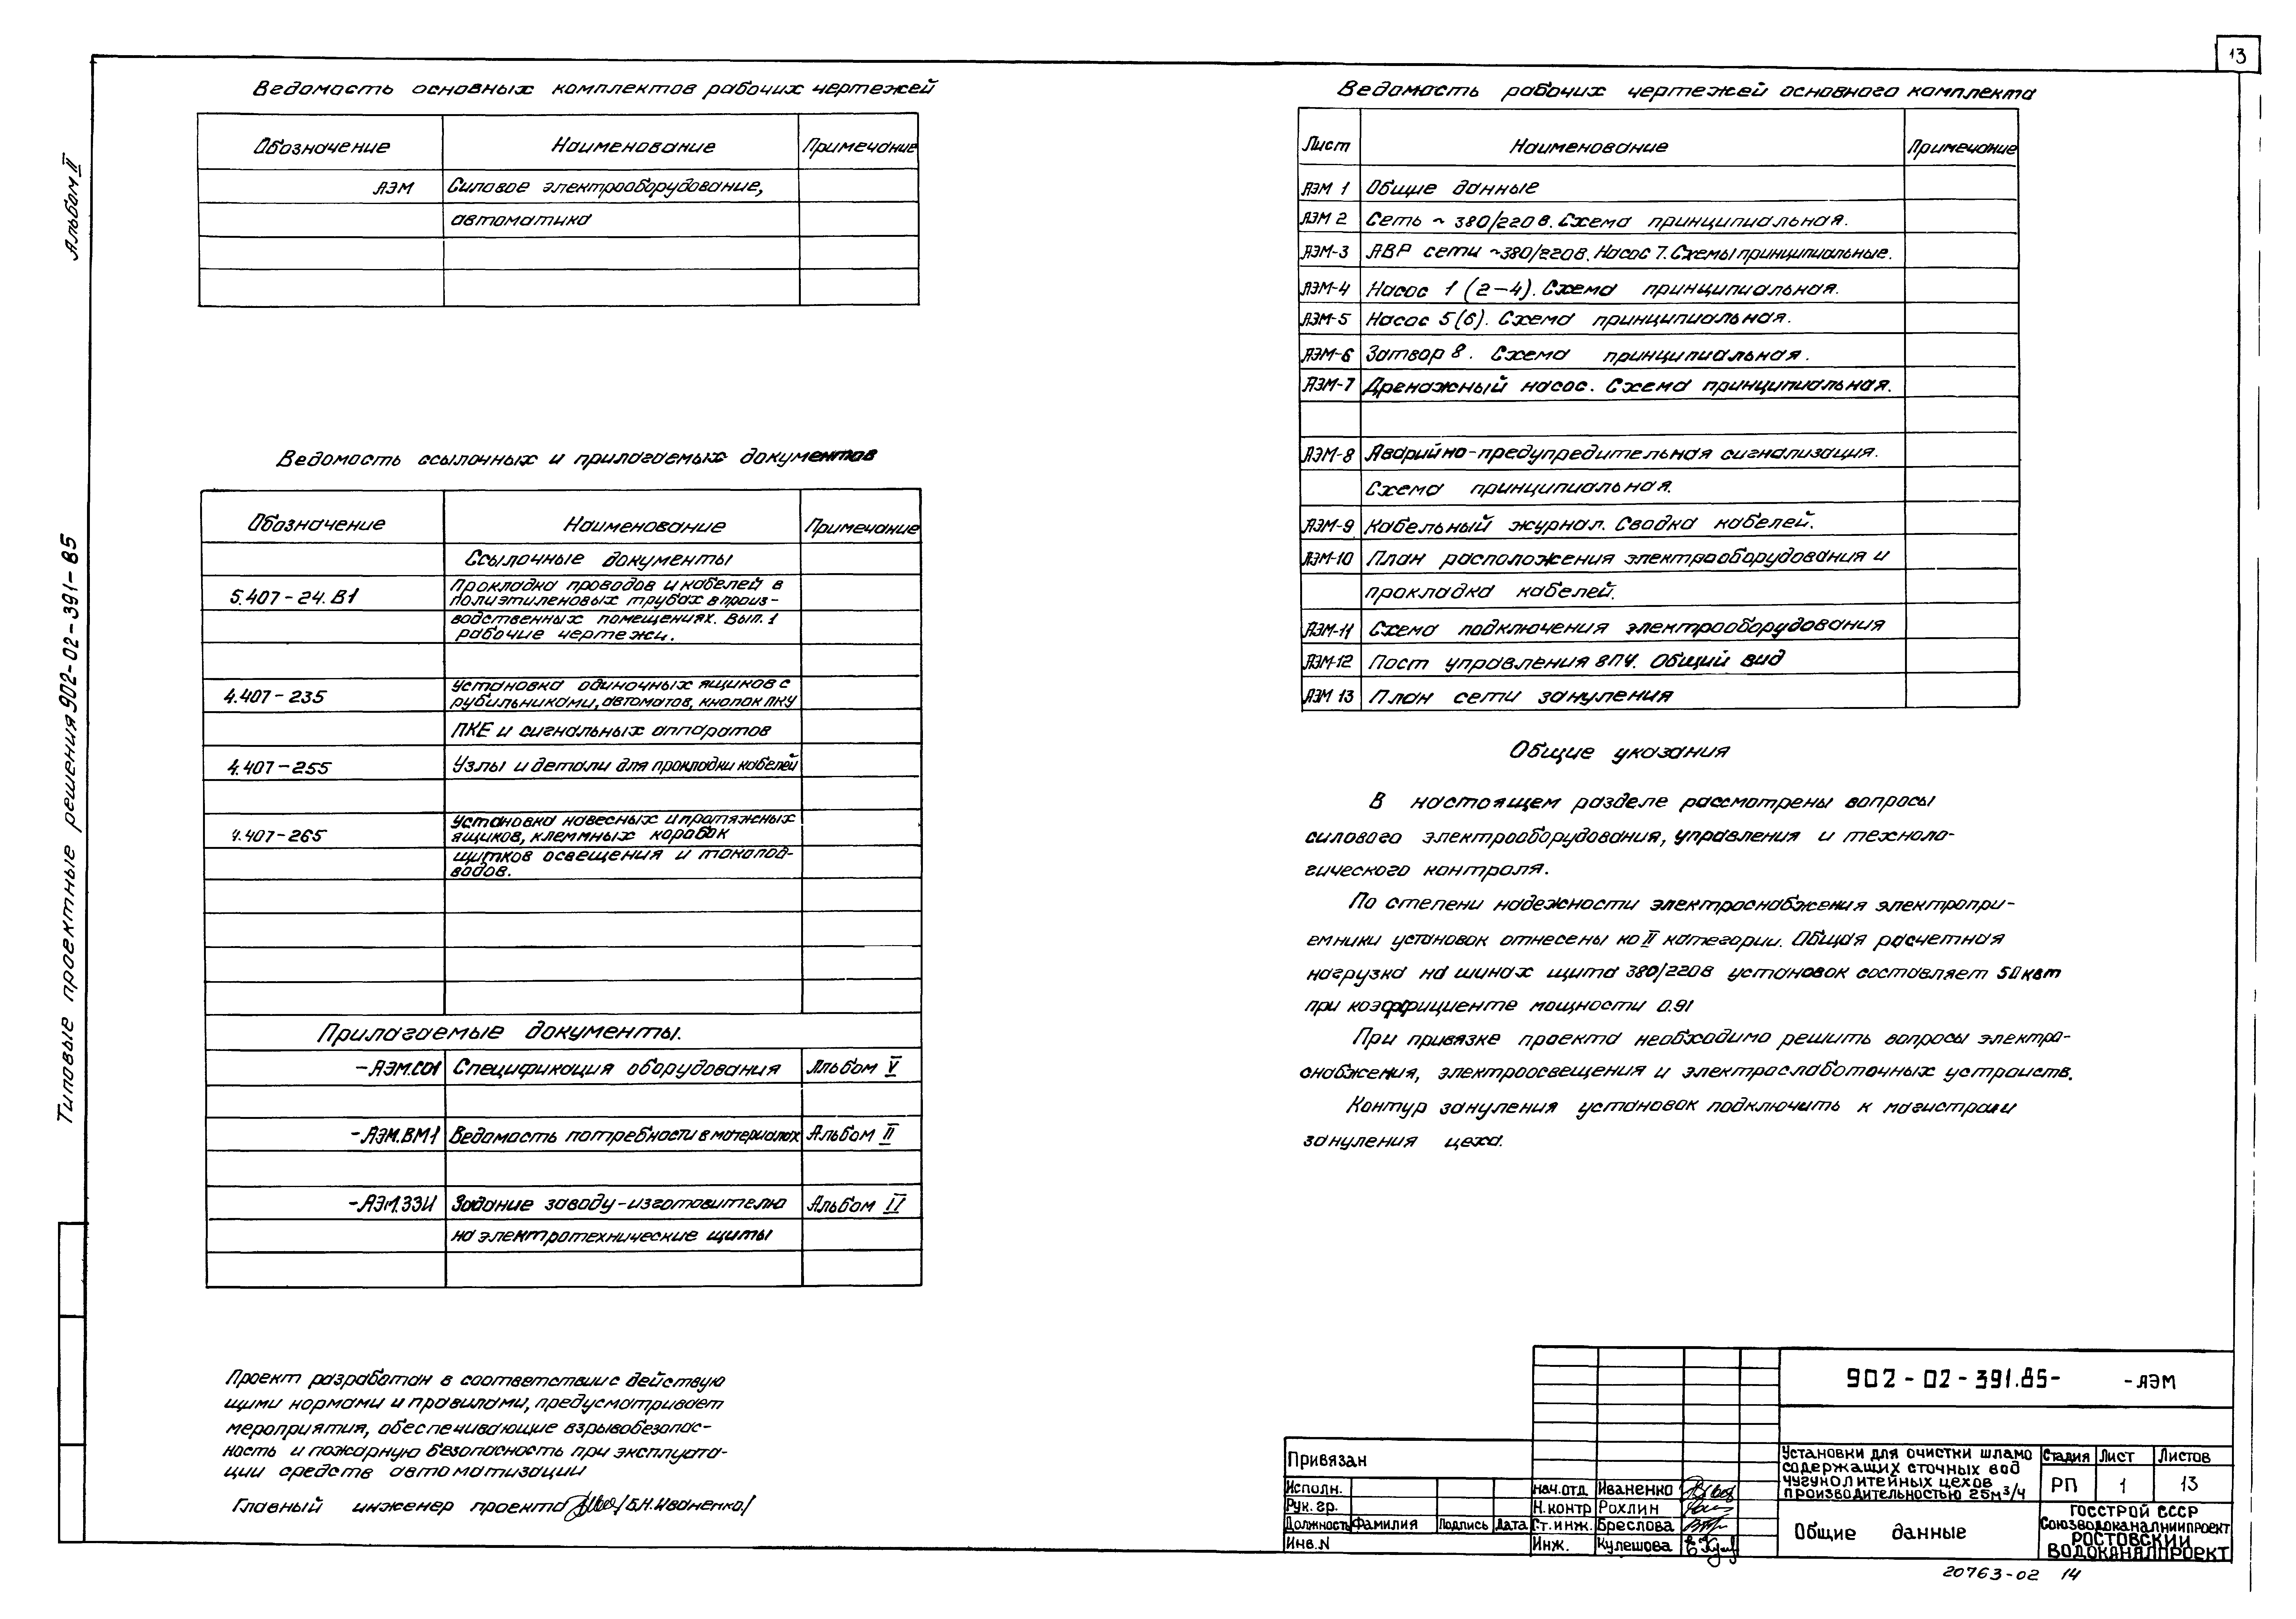 13
Альбом II
Типовые проектные решения 902-02-391-85
Ведомость основных комплектов рабочих чертежей
Обозначение Наименование Примечание
АЭМ Силовое электрооборудование,
автоматика
Ведомость ссылочных и прилагаемых документов
Обозначение Наименование Примечание
Ссылочные документы
5.407-24. В1 Прокладка проводов и кабелей в
полиэтиленовых трубах в произ-
водственных помещениях. Вып. 1
рабочие чертежи.
4.407-235 Установка одиночных ящиков с
рубильниками, автоматов, кнопок ПКУ
ПКЕ и сигнальных аппаратов
4.407-255 Узлы и детали для прокладки кабелей
4.407-265 Установка навесных и протяжных
ящиков, клеммных коробок
щитков освещения и токопод-
водов.
Прилагаемые документы.
-АЭМ.СО1 Спецификация оборудования Альбом V
-АЭМ.ВМ1 Ведомость потребности в материалах Альбом II
-АЭМ.ЗЗИ Задание заводу-изготовителю Альбом II
на электротехнические щиты
Проект разработан в соответствии с действую
щими нормами и правилами, предусматривает
мероприятия, обеспечивающие взрывобезопас-
ность и пожарную безопасность при эксплуата-
ции средств автоматизации
Главный инженер проекта /Б.Н.Иваненко/
Ведомость рабочих чертежей основного комплекта
Лист Наименование Примечание
АЭМ 1 Общие данные
АЭМ 2 Сеть ~ 380/220 в. Схема принципиальная.
АЭМ-3 АВР сети ~380/220в. Насос 7. Схемы принципиальные.
АЭМ-4 Насос 1 (2-4). Схема принципиальная.
АЭМ-5 Насос 5(6). Схема принципиальная.
АЭМ-6 Затвор 8. Схема принципиальная.
АЭМ-7 Дренажный насос. Схема принципиальная.
АЭМ-8 Аварийно-предупредительная сигнализация.
Схема принципиальная.
АЭМ-9 Кабельный журнал. Сводка кабелей.
АЭМ-10 План расположения электрооборудования и
прокладка кабелей.
АЭМ-11 Схема подключения электрооборудования
АЭМ-12 Пост управления 8ПУ. Общий вид
АЭМ 13 План сети зануления
Общие указания
В настоящем разделе рассмотрены вопросы
силового электрооборудования, управления и техноло-
гического контроля.
По степени надежности электроснабжения электропри-
емники установок отнесены ко II категории. Общая расчетная
нагрузка на шинах щита 380/220в установок составляет 50 квт
при коэффициенте мощности 0.91
При привязке проекта необходимо решить вопросы электро-
снабжения, электроосвещения и электрослаботочных устройств.
Контур зануления установок подключить к магистрали
зануления цеха.
902-02-391.85- -АЭМ
Привязан
Исполн.
Рук. гр.
Должность Фамилия Подпись Дата
Инв.N
Нач.отд. Иваненко
Н.контр Рохлин
Ст.инж. Бреслова
Инж. Кулешова
Установки для очистки шламо
содержащих сточных вод
чугунолитейных цехов
производительностью 25м³/ч
Стадия Лист Листов
РП 1 13
Общие данные
ГОССТРОЙ СССР
Союзводоканалниипроект
РОСТОВСКИЙ
ВОДОКАНАЛПРОЕКТ
20763-02 14